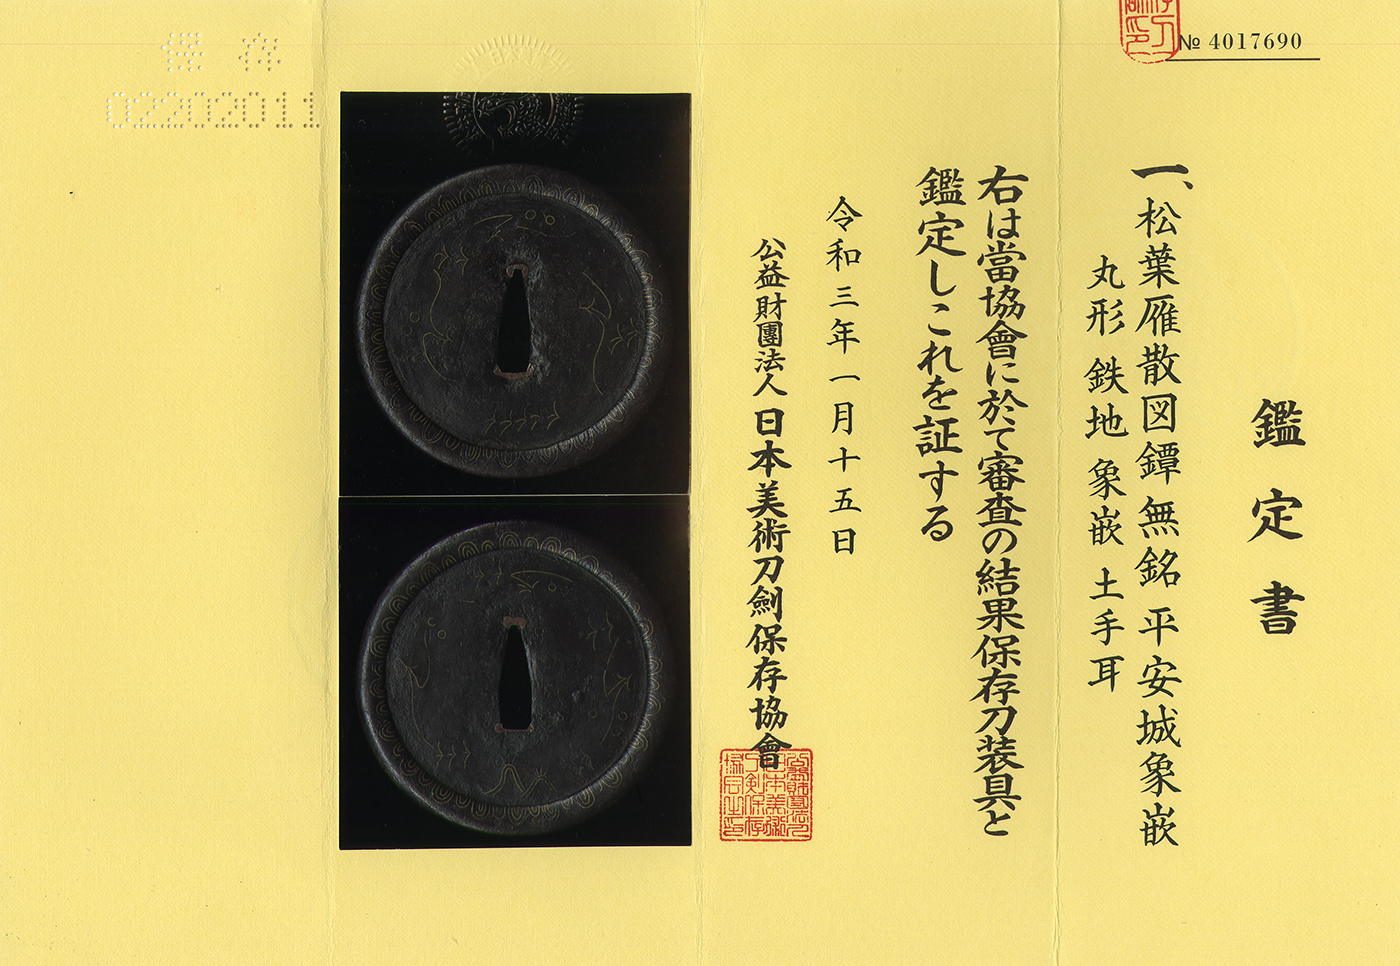 № 4017690
鑑定書
一、松葉雁散図鐔 無銘 平安城象嵌
丸形 鉄地 象嵌 土手耳
右は當協會に於て審査の結果保存刀装具と
鑑定しこれを証する
令和三年一月十五日
公益財團法人 日本美術刀劍保存協會
保存
02202011